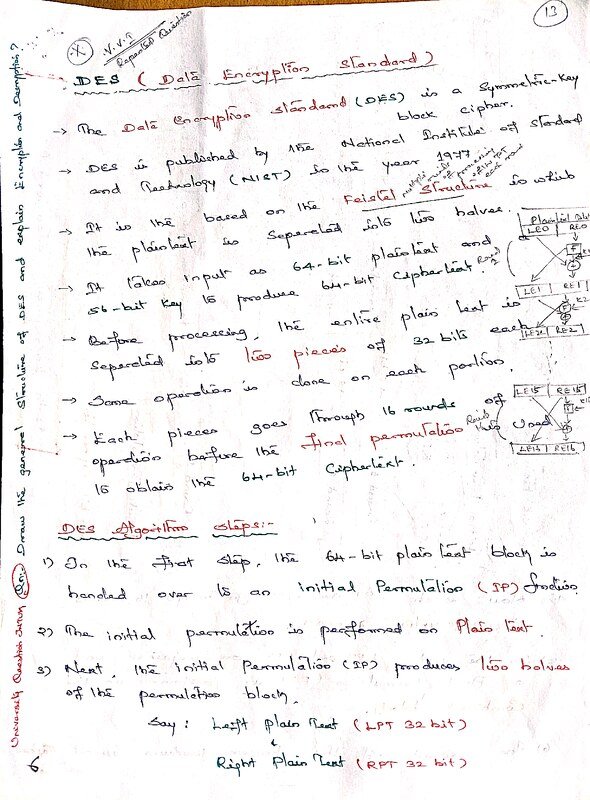 13
V.V.I
Repeated Question
DES ( Data Encryption Standard )
→ The Data Encryption standard (DES) is a Symmetric-key
block cipher.
→ DES is published by the National Institute of Standard
and Technology (NIST) in the year 1977
→ It is the based on the Feistel Structure in which
the plaintext is Separated into two halves.
→ It takes input as 64-bit plaintext and
56-bit key to produce 64-bit Ciphertext.
→ Before processing, the entire plain text is
seperated into two pieces of 32 bits each
→ Same operation is done on each portion.
→ Each pieces goes through 16 rounds of
operation before the final permutation
to obtain the 64-bit Ciphertext.
LE0 RE0
F
Round 1
LE1 RE1
F
RE2
LE15 RE15
F
Round
used
RE16
DES Algorithm Steps:-
1) In the first step, the 64-bit plain text block is
handed over to an initial Permutation (IP) function
2) The initial permutation is performed on Plain text.
3) Next, the initial Permutation (IP) produces two halves
of the permutation block.
Say : Left Plain Text (LPT 32 bit)
&
Right Plain Text (RPT 32 bit)
6
University Question Qn. Draw the general structure of DES and explain Encryption and Decryption?